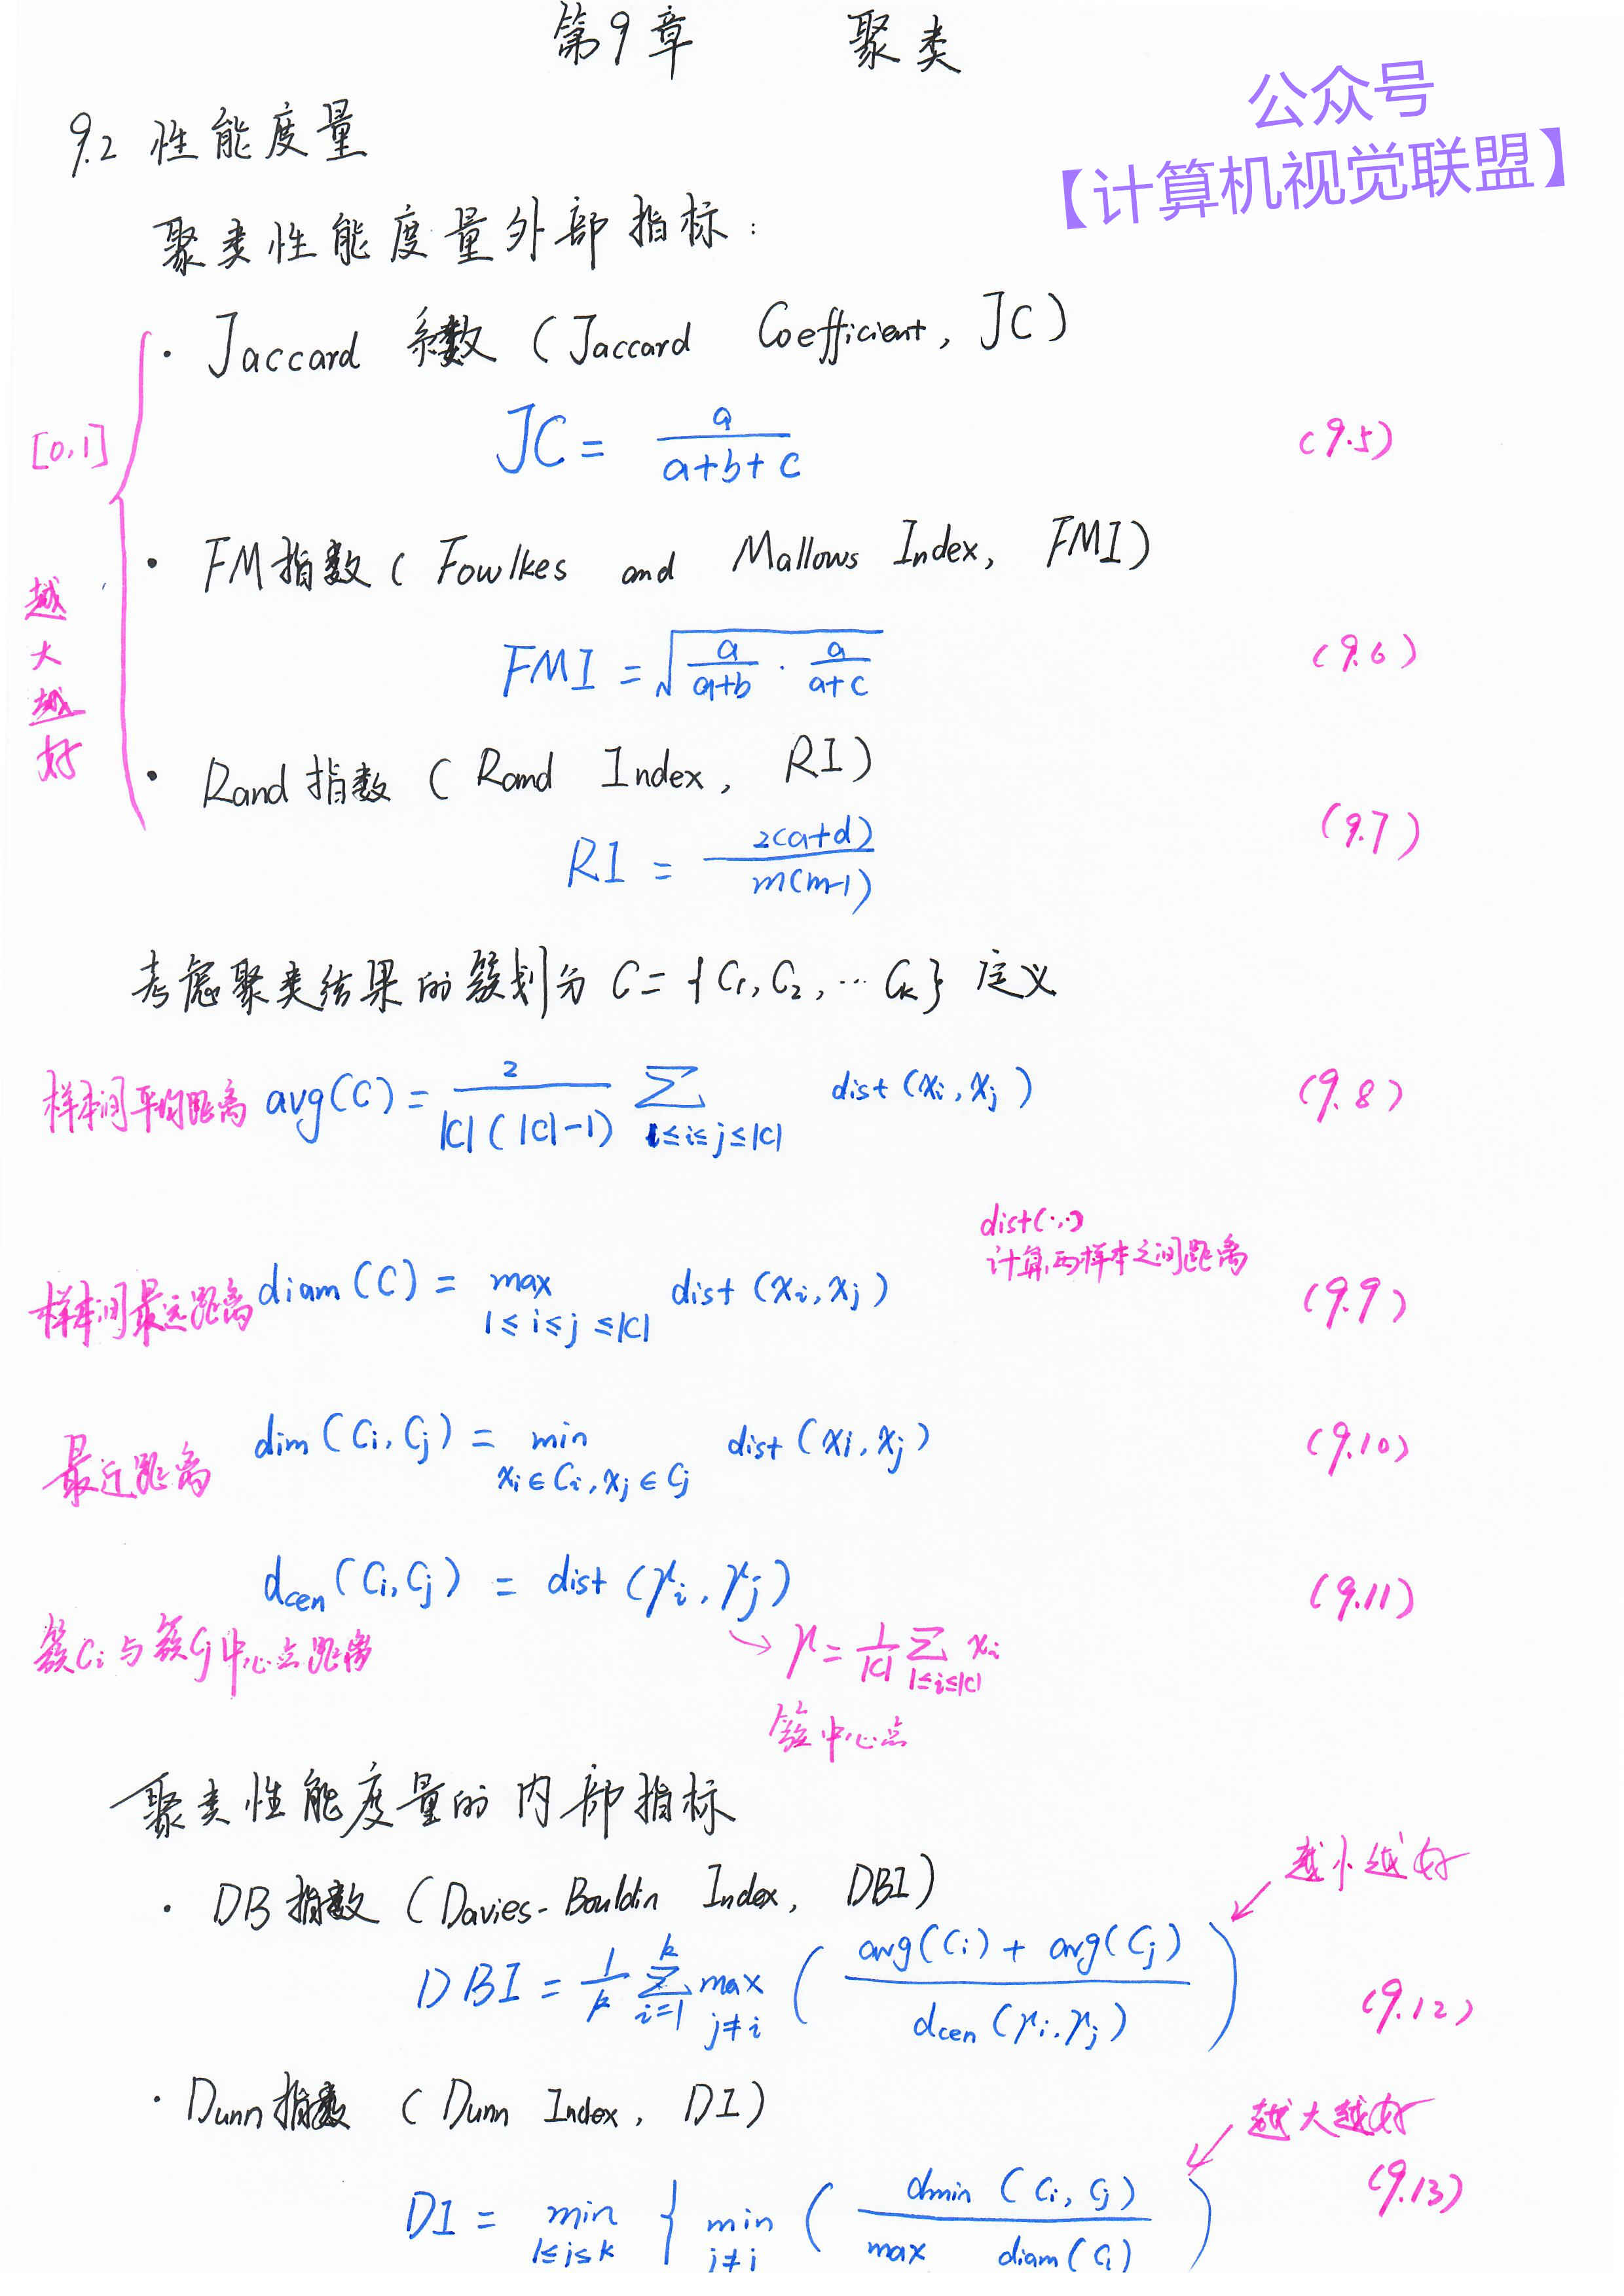 第9章 聚类
公众号
【计算机视觉联盟】
9.2 性能度量
聚类性能度量外部指标:
· Jaccard 系数 (Jaccard Coefficient, JC)
[0,1]
越大越好
JC = a / (a+b+c) (9.5)
· FM指数 ( Fowlkes and Mallows Index, FMI)
FMI = √(a/(a+b) · a/(a+c)) (9.6)
· Rand指数 ( Rand Index, RI)
RI = 2(a+d) / m(m-1) (9.7)
考虑聚类结果的簇划分 C = {C₁, C₂, … Cₖ} 定义
样本间平均距离 avg(C) = 2 / |C|(|C|-1) ∑ 1≤i≤j≤|C| dist(xᵢ, xⱼ) (9.8)
dist(·,·)
计算两样本之间距离
样本间最远距离 diam(C) = max 1≤i≤j≤|C| dist(xᵢ, xⱼ) (9.9)
最近距离 dim(Cᵢ, Cⱼ) = min xᵢ∈Cᵢ, xⱼ∈Cⱼ dist(xᵢ, xⱼ) (9.10)
dcen(Cᵢ, Cⱼ) = dist(μᵢ, μⱼ) (9.11)
簇Cᵢ与簇Cⱼ中心点距离
→ μ = 1/|C| ∑ 1≤i≤|C| xᵢ
簇中心点
聚类性能度量的内部指标
· DB指数 (Davies-Bouldin Index, DBI)
越小越好
DBI = 1/k ∑ i=1 k max j≠i ( avg(Cᵢ) + avg(Cⱼ) / dcen(μᵢ, μⱼ) ) (9.12)
· Dunn指数 ( Dunn Index, DI)
越大越好
DI = min 1≤j≤k { min j≠i ( dmin(Cᵢ, Cⱼ) / max diam(Cₗ) ) (9.13)